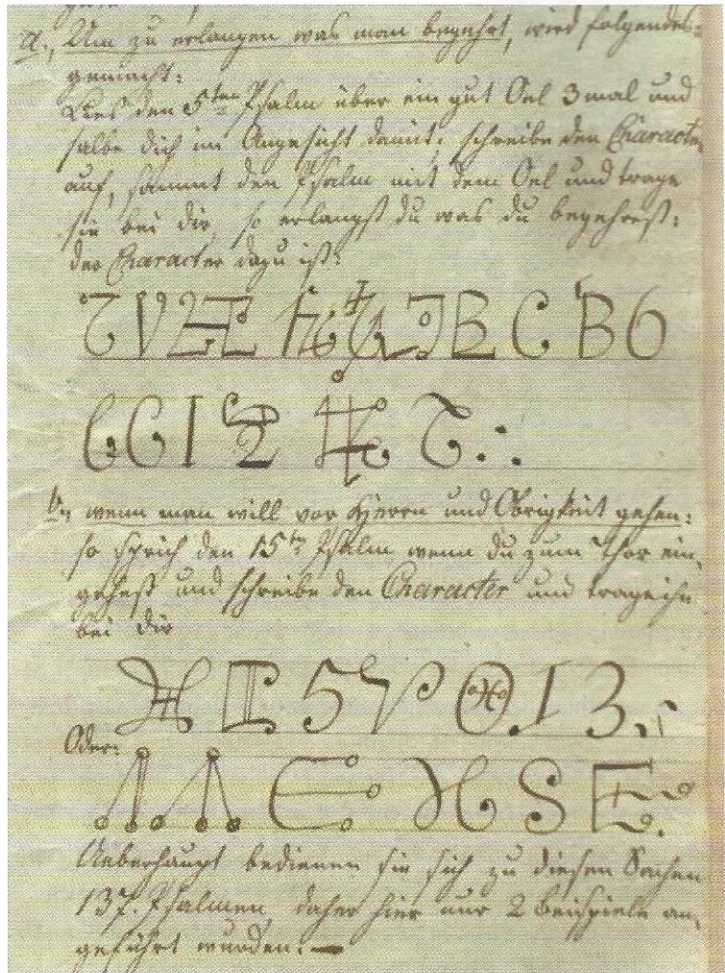 a., Um zu erlangen was man begehrt, wird folgendes
gemacht:
Lies den 5ten Psalm über ein gut Oel 3 mal und
salbe dich im Angesicht damit, schreibe den Character
auf, sammt den Psalm mit dem Oel und trage
sie bei dir, so erlangst du was du begehrest:
der Character dazu ist:
b., wenn man will vor Herren und Obrigkeit gehen:
so sprich den 15ten Psalm wenn du zum Thor ein-
gehest und schreibe den Character und trage ihn
bei dir
Oder:
Ueberhaupt bedienen sie sich zu diesen Sachen
137. Psalmen, daher hier nur 2 Beispiele an-
geführt wurden. —